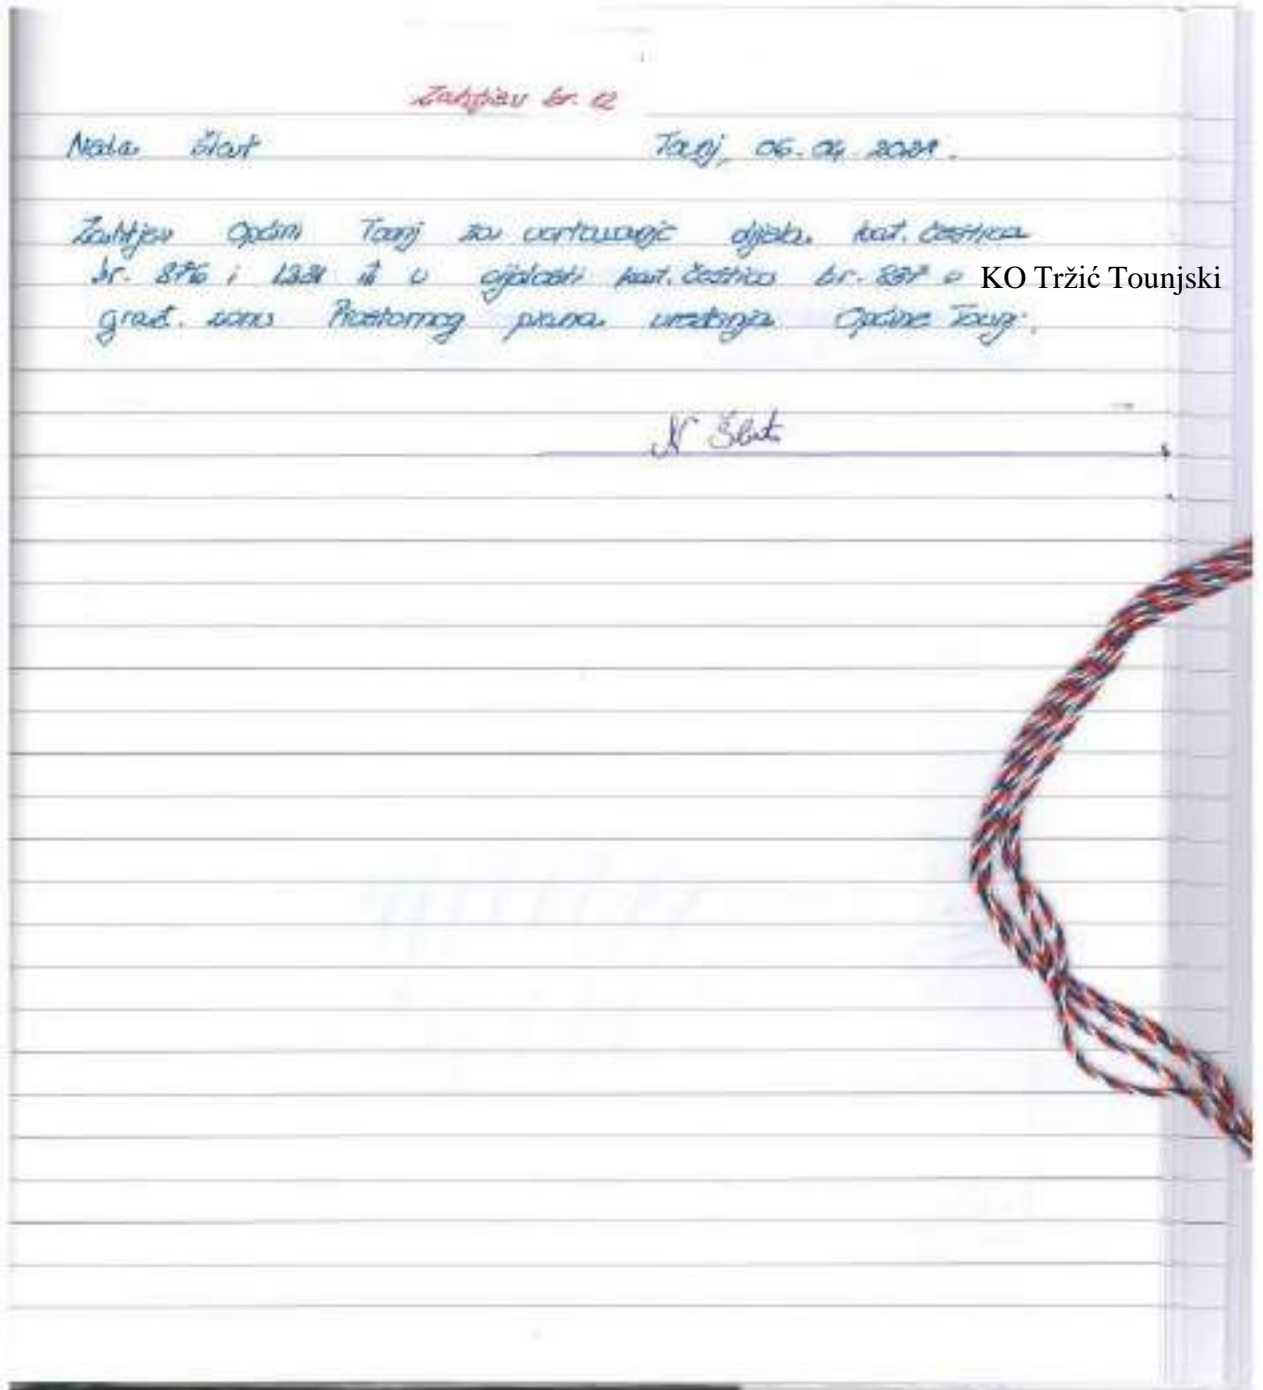 Zahtjev br. 12
Nada Šlat Tounj, 06.04.2021.
Zahtjev Općini Tounj za uvrtavanje dijela kat. čestica
br. 876 i 1331 te u cijelosti kat. čestica br. 887 u KO Tržić Tounjski
građ. zonu Prostornog plana uređenja Općine Tounj.
N Šlat